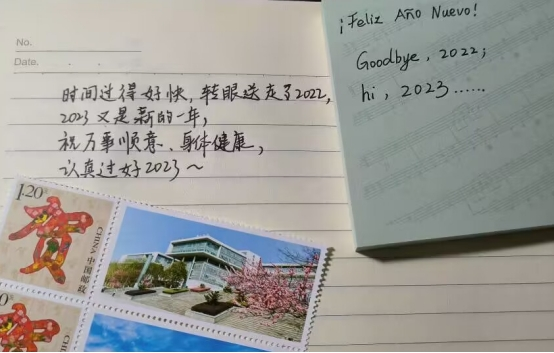 No.
Date.
时间过得好快，转眼送走了2022，
2023又是新的一年，
祝万事顺意、身体健康，
认真过好2023～
¡Feliz Año Nuevo!
Goodbye, 2022;
hi, 2023……
1.20
贺
CHINA 中国邮政